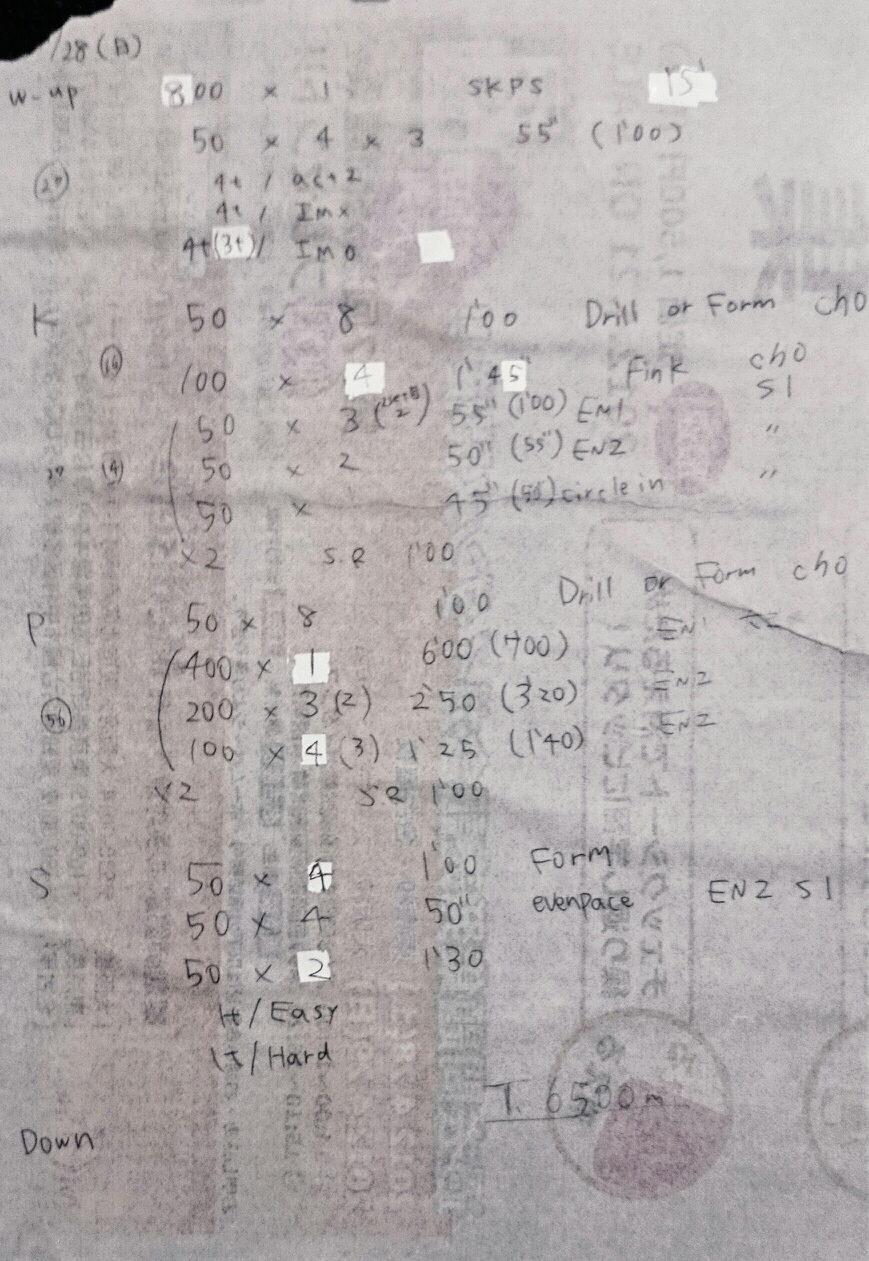 /28 (日)
W-up 800 × 1 SKPS 15'
50 × 4 × 3 55" (1'00)
4t / act2
4t / Imx
4t(3t) / Imo
K 50 × 8 1'00 Drill or Form cho
100 × 4 1'45" Fink cho
S1
50 × 3 55" (1'00) EN1 "
50 × 2 50" (55") EN2 "
50 × 45" circle in
×2 S.R 1'00
P 50 × 8 1'00 Drill or Form cho
400 × 1 6'00 (7'00) EN1
56 200 × 3 (2) 2'50 (3'20) EN2
100 × 4 (3) 1'25 (1'40) EN2
×2 S.R 1'00
S 50 × 4 1'00 Form
50 × 4 50" evenpace EN2 S1
50 × 2 1'30
1t / Easy
1t / Hard
T. 6500m
Down